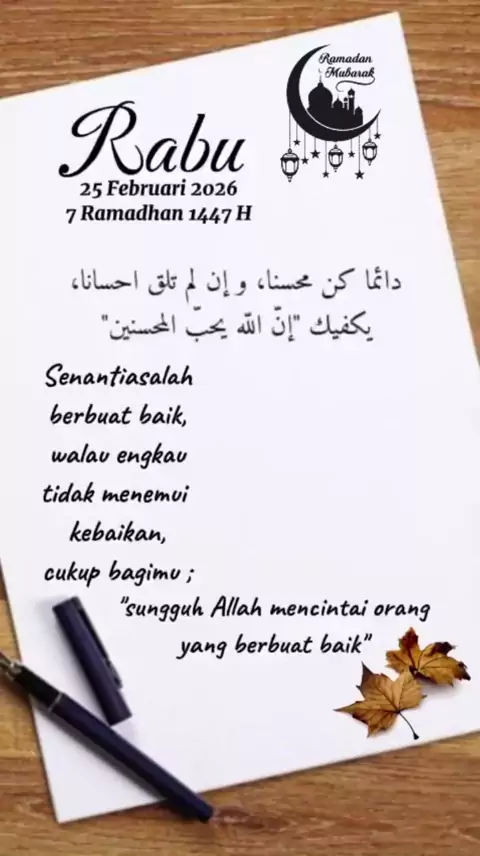 Ramadan
Mubarak
Rabu
25 Februari 2026
7 Ramadhan 1447 H
دائما كن محسنا، و إن لم تلق احسانا،
يكفيك "إنّ الله يحبّ المحسنين"
Senantiasalah
berbuat baik,
walau engkau
tidak menemui
kebaikan,
cukup bagimu ;
"sungguh Allah mencintai orang
yang berbuat baik"